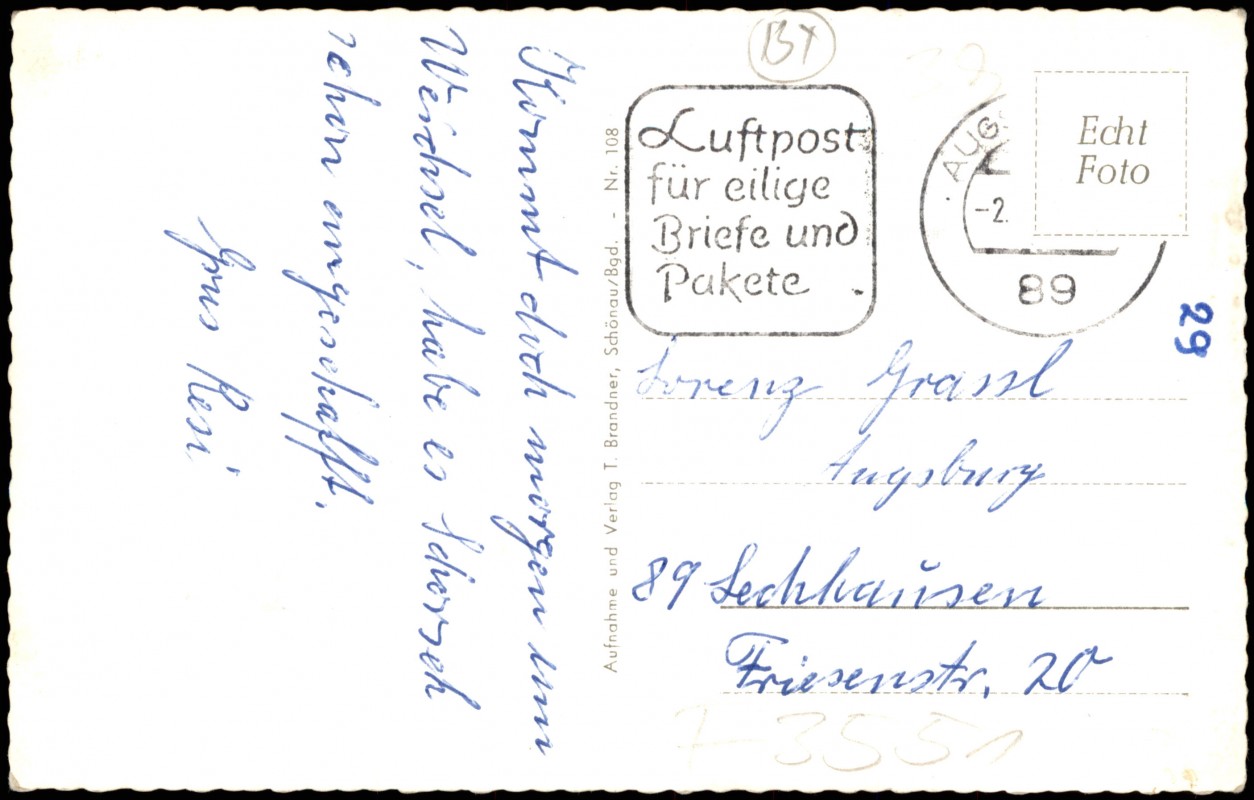 Kommt doch morgen um
Weichsel, habe es Schorsch
schon angeschafft.
Grus Resi
Aufnahme und Verlag T. Brandner, Schönau/Bgd. - Nr. 108
BY
Luftpost
für eilige
Briefe und
Pakete
AUG
-2.
89
Echt
Foto
29
Lorenz Grassl
Augsburg
89 Lechhausen
Friesenstr. 20
7 3551